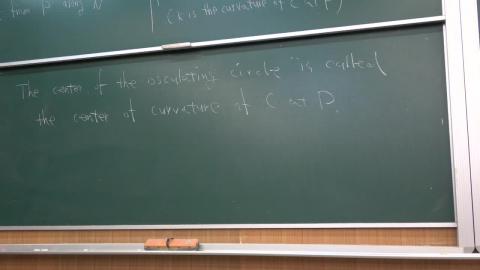 from P along N
(k is the curvature of C at P)
The center of the osculating circle is called
the center of curvature of C at P.